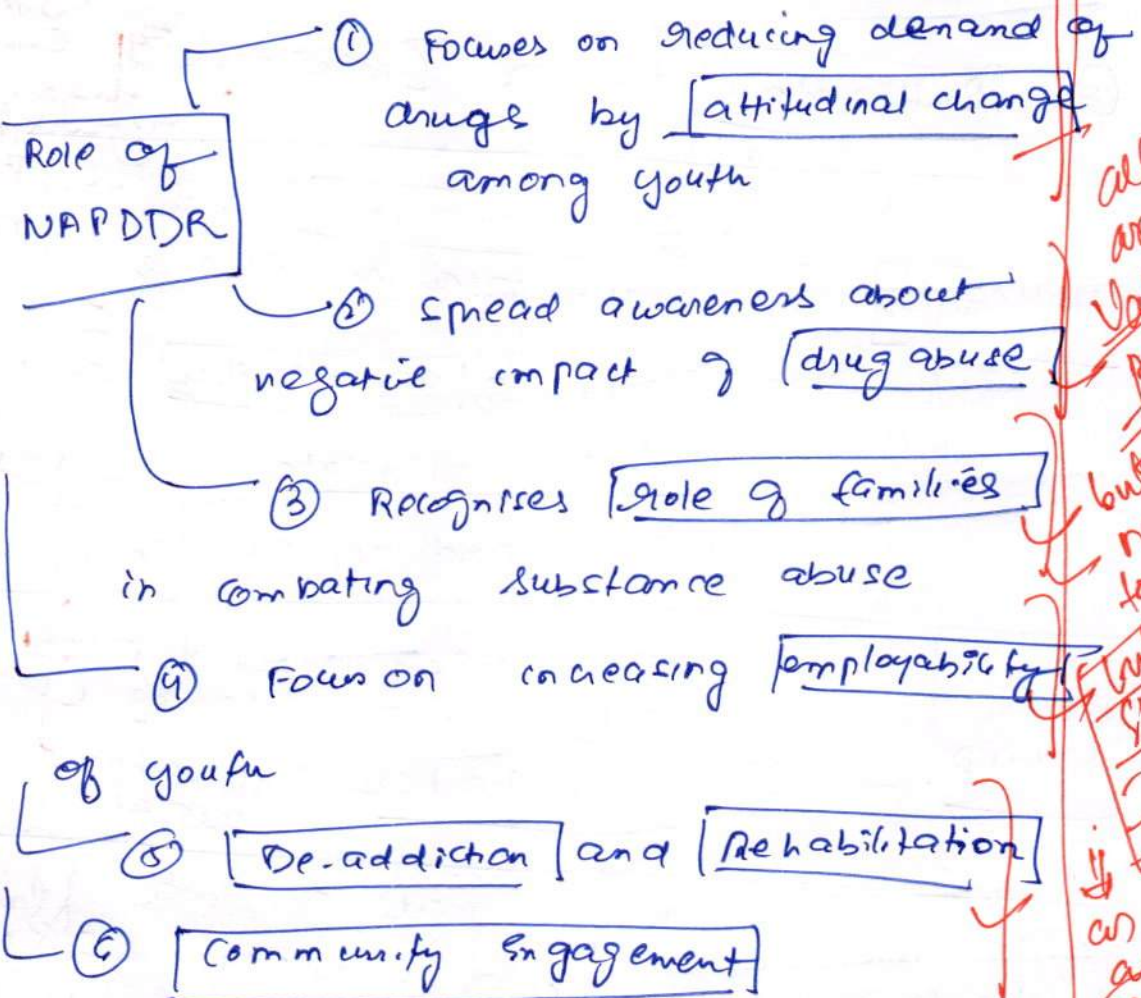 ① Focuses on reducing demand of
drugs by attitudinal change
among youth
Role of
NAPDDR
② spread awareness about
negative impact of drug abuse
③ Recognises role of families
in combating substance abuse
④ Focus on increasing employability
of youth
⑤ De-addiction and Rehabilitation
⑥ Community Engagement
but
as